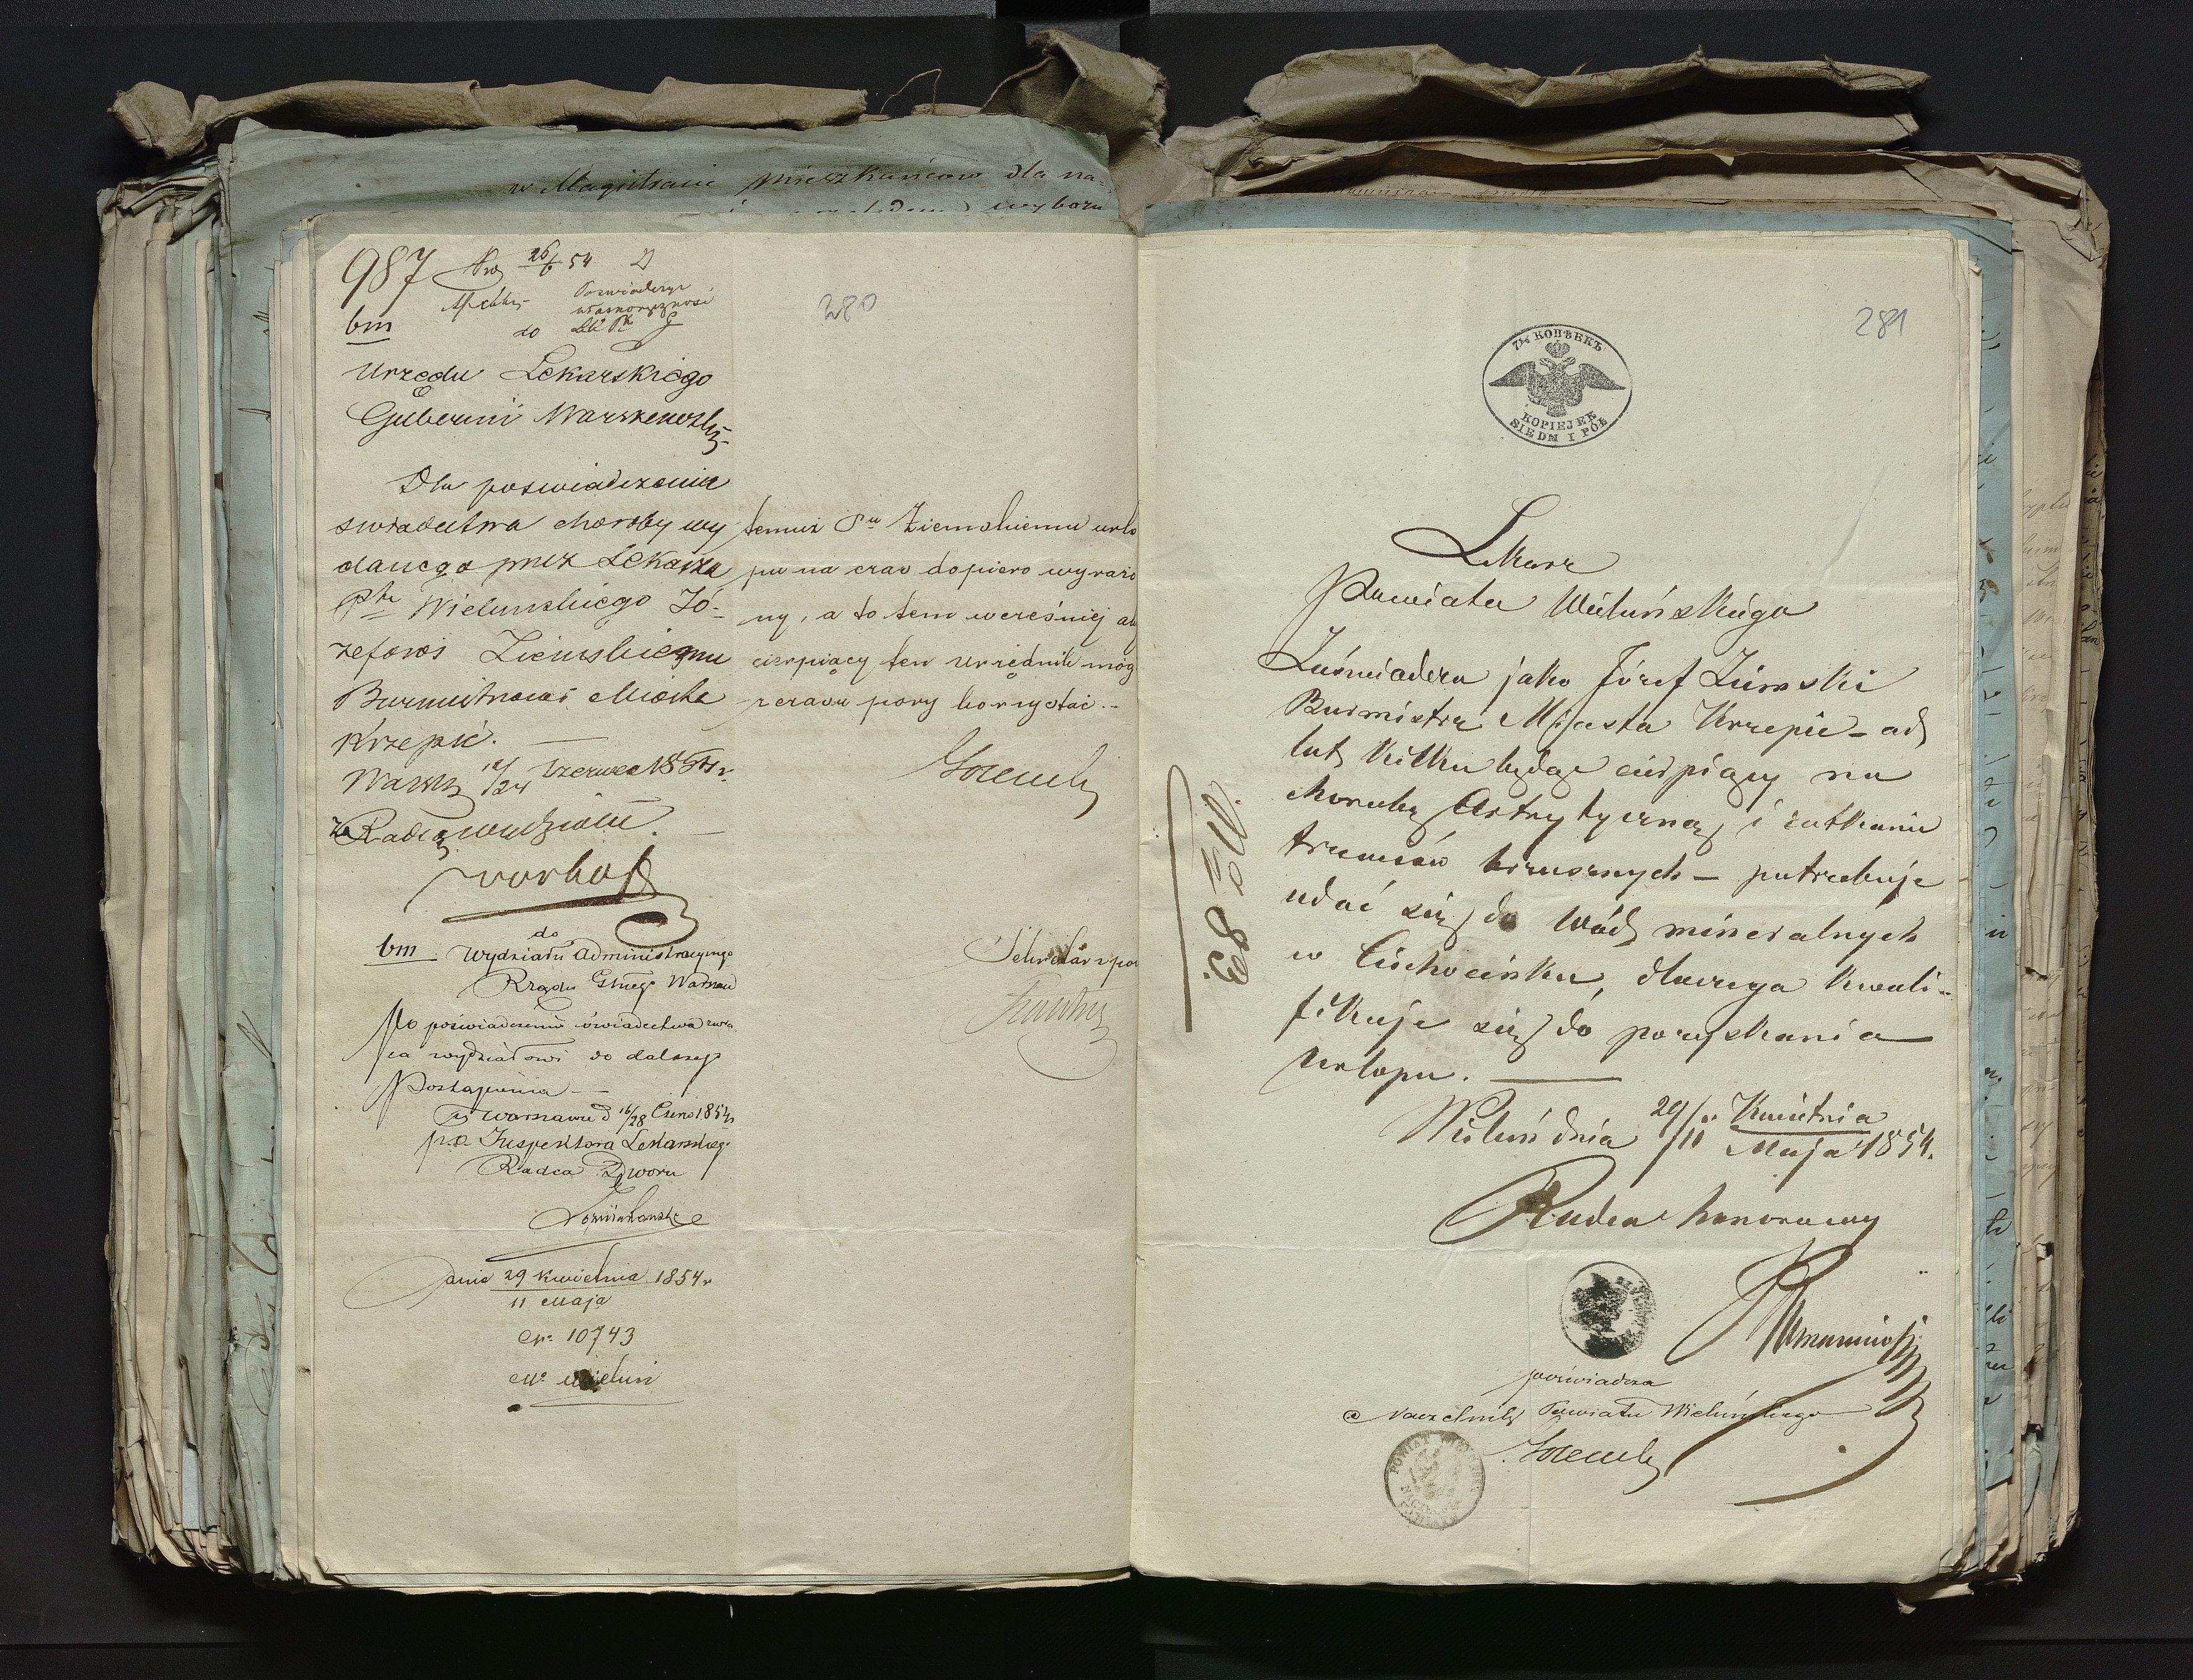 w Magistracie mieszkańców dla na=
wyboru
987
26/6 54
280
Poświadczyć
własnoręczność
bm
do
Urzędu Lekarskiego
Gubernii Warszawskiej
Dla poswiadczenia
swiadectwa choroby wy
danego przez Lekarza
Ptu Wielunskiego Jó-
zefowi Ziemskiemu
Burmistrzowi Miasta
Krzepic.
Warsz 12/24 Czerwca 1854 r.
za Radcę wydziału.
do
bm Wydziału Administracyjnego
Rządu Gtnego Warsza
Po poświadczeniu świadectwa zwra
ca wydziałowi do dalszego
Postąpienia
w Warszawie d 16/28 Czerw 1854 r
p.o. Inspektora Lekarskiego
Radca Dworu
Dnia 29 Kwietnia 1854 r
11 Maja
No 10743
Mo Wieluń
temuż Pu Ziemskiemu urlo
pu na czas dopiero wyrażo
ny, a to tem wcześniej aby
cierpiący ten urzędnik mógł
z czasu pory korzystać.
Sekretarz po
281
7½ КОПѢЕКЪ
KOPIEJEK
SIEDM I PÓŁ
No 83
Lekarz
Powiatu Wieluńskiego
Zaświadcza jako Józef Ziemski
Burmistrz Miasta Krzepic - od
lat kilku będąc cierpiący na
chorobę Artrytyczną i zatkanie
trzewiów brzusznych - potrzebuje
udać się do wód mineralnych
w Ciechocinku, dlaczego kwali-
fikuje się do pozyskania
Urlopu.
Wieluń dnia 29/11 Kwietnia
Maja 1854.
Radca honorowy
poświadcza
Naczelnik Powiatu Wieluńskiego